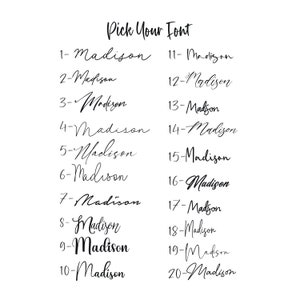 Pick Your Font
1- Madison
2- Madison
3- Madison
4- Madison
5- Madison
6- Madison
7- Madison
8- Madison
9- Madison
10- Madison
11- Madison
12- Madison
13- Madison
14- Madison
15- Madison
16- Madison
17- Madison
18- Madison
19- Madison
20- Madison